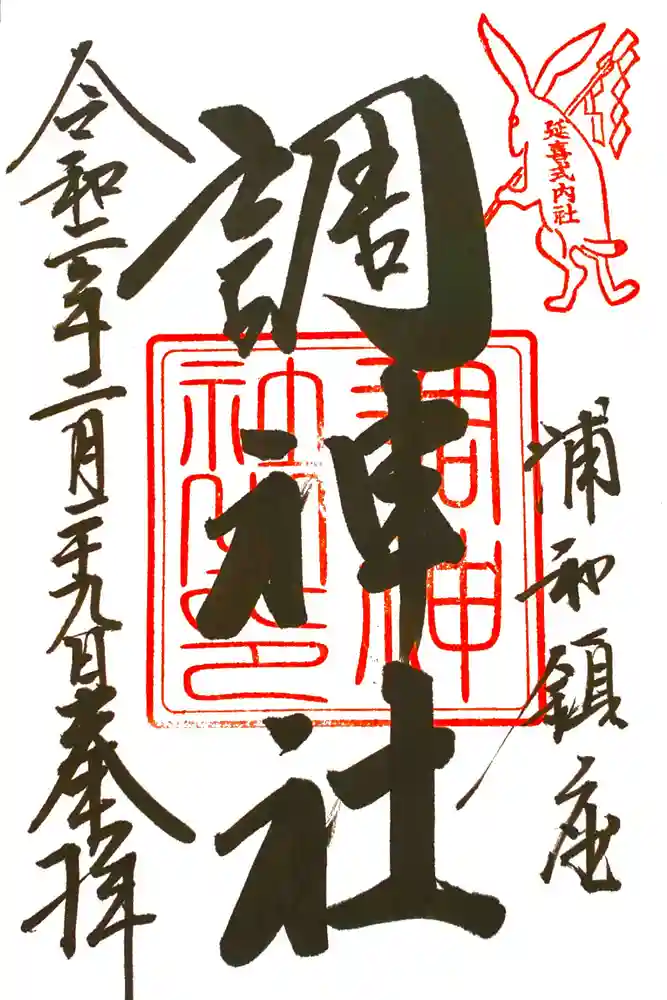 延喜式内社
浦和鎮座
調神社
調神社之印
令和二年二月二十九日奉拝